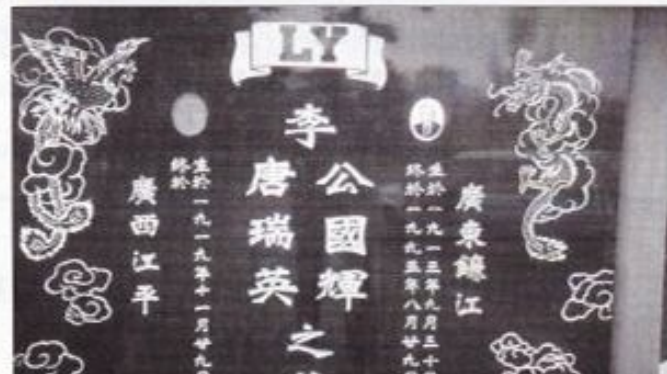 LY
廣東江
生於一九一三年九月三十
終於一九九五年八月廿九
李
公國輝
唐瑞英
之
生於一九一九年十一月廿九
終於
廣西江平